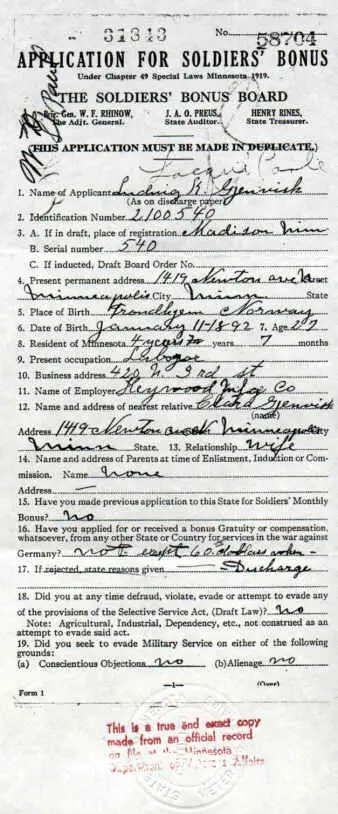 31343 No. 58704
APPLICATION FOR SOLDIERS' BONUS
Under Chapter 49 Special Laws Minnesota 1919.
THE SOLDIERS' BONUS BOARD
Brig. Gen. W. F. RHINOW, J. A. O. PREUS, HENRY RINES,
The Adjt. General. State Auditor. State Treasurer.
(THIS APPLICATION MUST BE MADE IN DUPLICATE.)
1. Name of Applicant Ludvig K Gjervik
(As on discharge paper)
2. Identification Number 2100540
3. A. If in draft, place of registration Madison Minn
B. Serial number 540
C. If inducted, Draft Board Order No.
4. Present permanent address 1419 Newton ave N Street
Minneapolis City Minn State
5. Place of Birth Trondhjem Norway
6. Date of Birth January 11-1892 7. Age 27
8. Resident of Minnesota 4 years 7 months
9. Present occupation Laborer
10. Business address 420 N. 3rd st
11. Name of Employer Heywood Mfg Co
12. Name and address of nearest relative Clara Gjervik
(name)
Address 1419 Newton ave N Minneapolis City
Minn State. 13. Relationship Wife
14. Name and address of Parents at time of Enlistment, Induction or Com-
mission. Name None
Address —
15. Have you made previous application to this State for Soldiers' Monthly
Bonus? No
16. Have you applied for or received a bonus Gratuity or compensation,
whatsoever, from any other State or Country for services in the war against
Germany? not exept 60 dollars when –
17. If rejected, state reasons given — Discharge
18. Did you at any time defraud, violate, evade or attempt to evade any
of the provisions of the Selective Service Act, (Draft Law)? No
Note: Agricultural, Industrial, Dependency, etc., not construed as an
attempt to evade said act.
19. Did you seek to evade Military Service on either of the following
grounds:
(a) Conscientious Objections no (b) Alienage no
—1— (Over)
Form 1
This is a true and exact copy
made from an official record
on file at the Minnesota
Department of Veterans Affairs